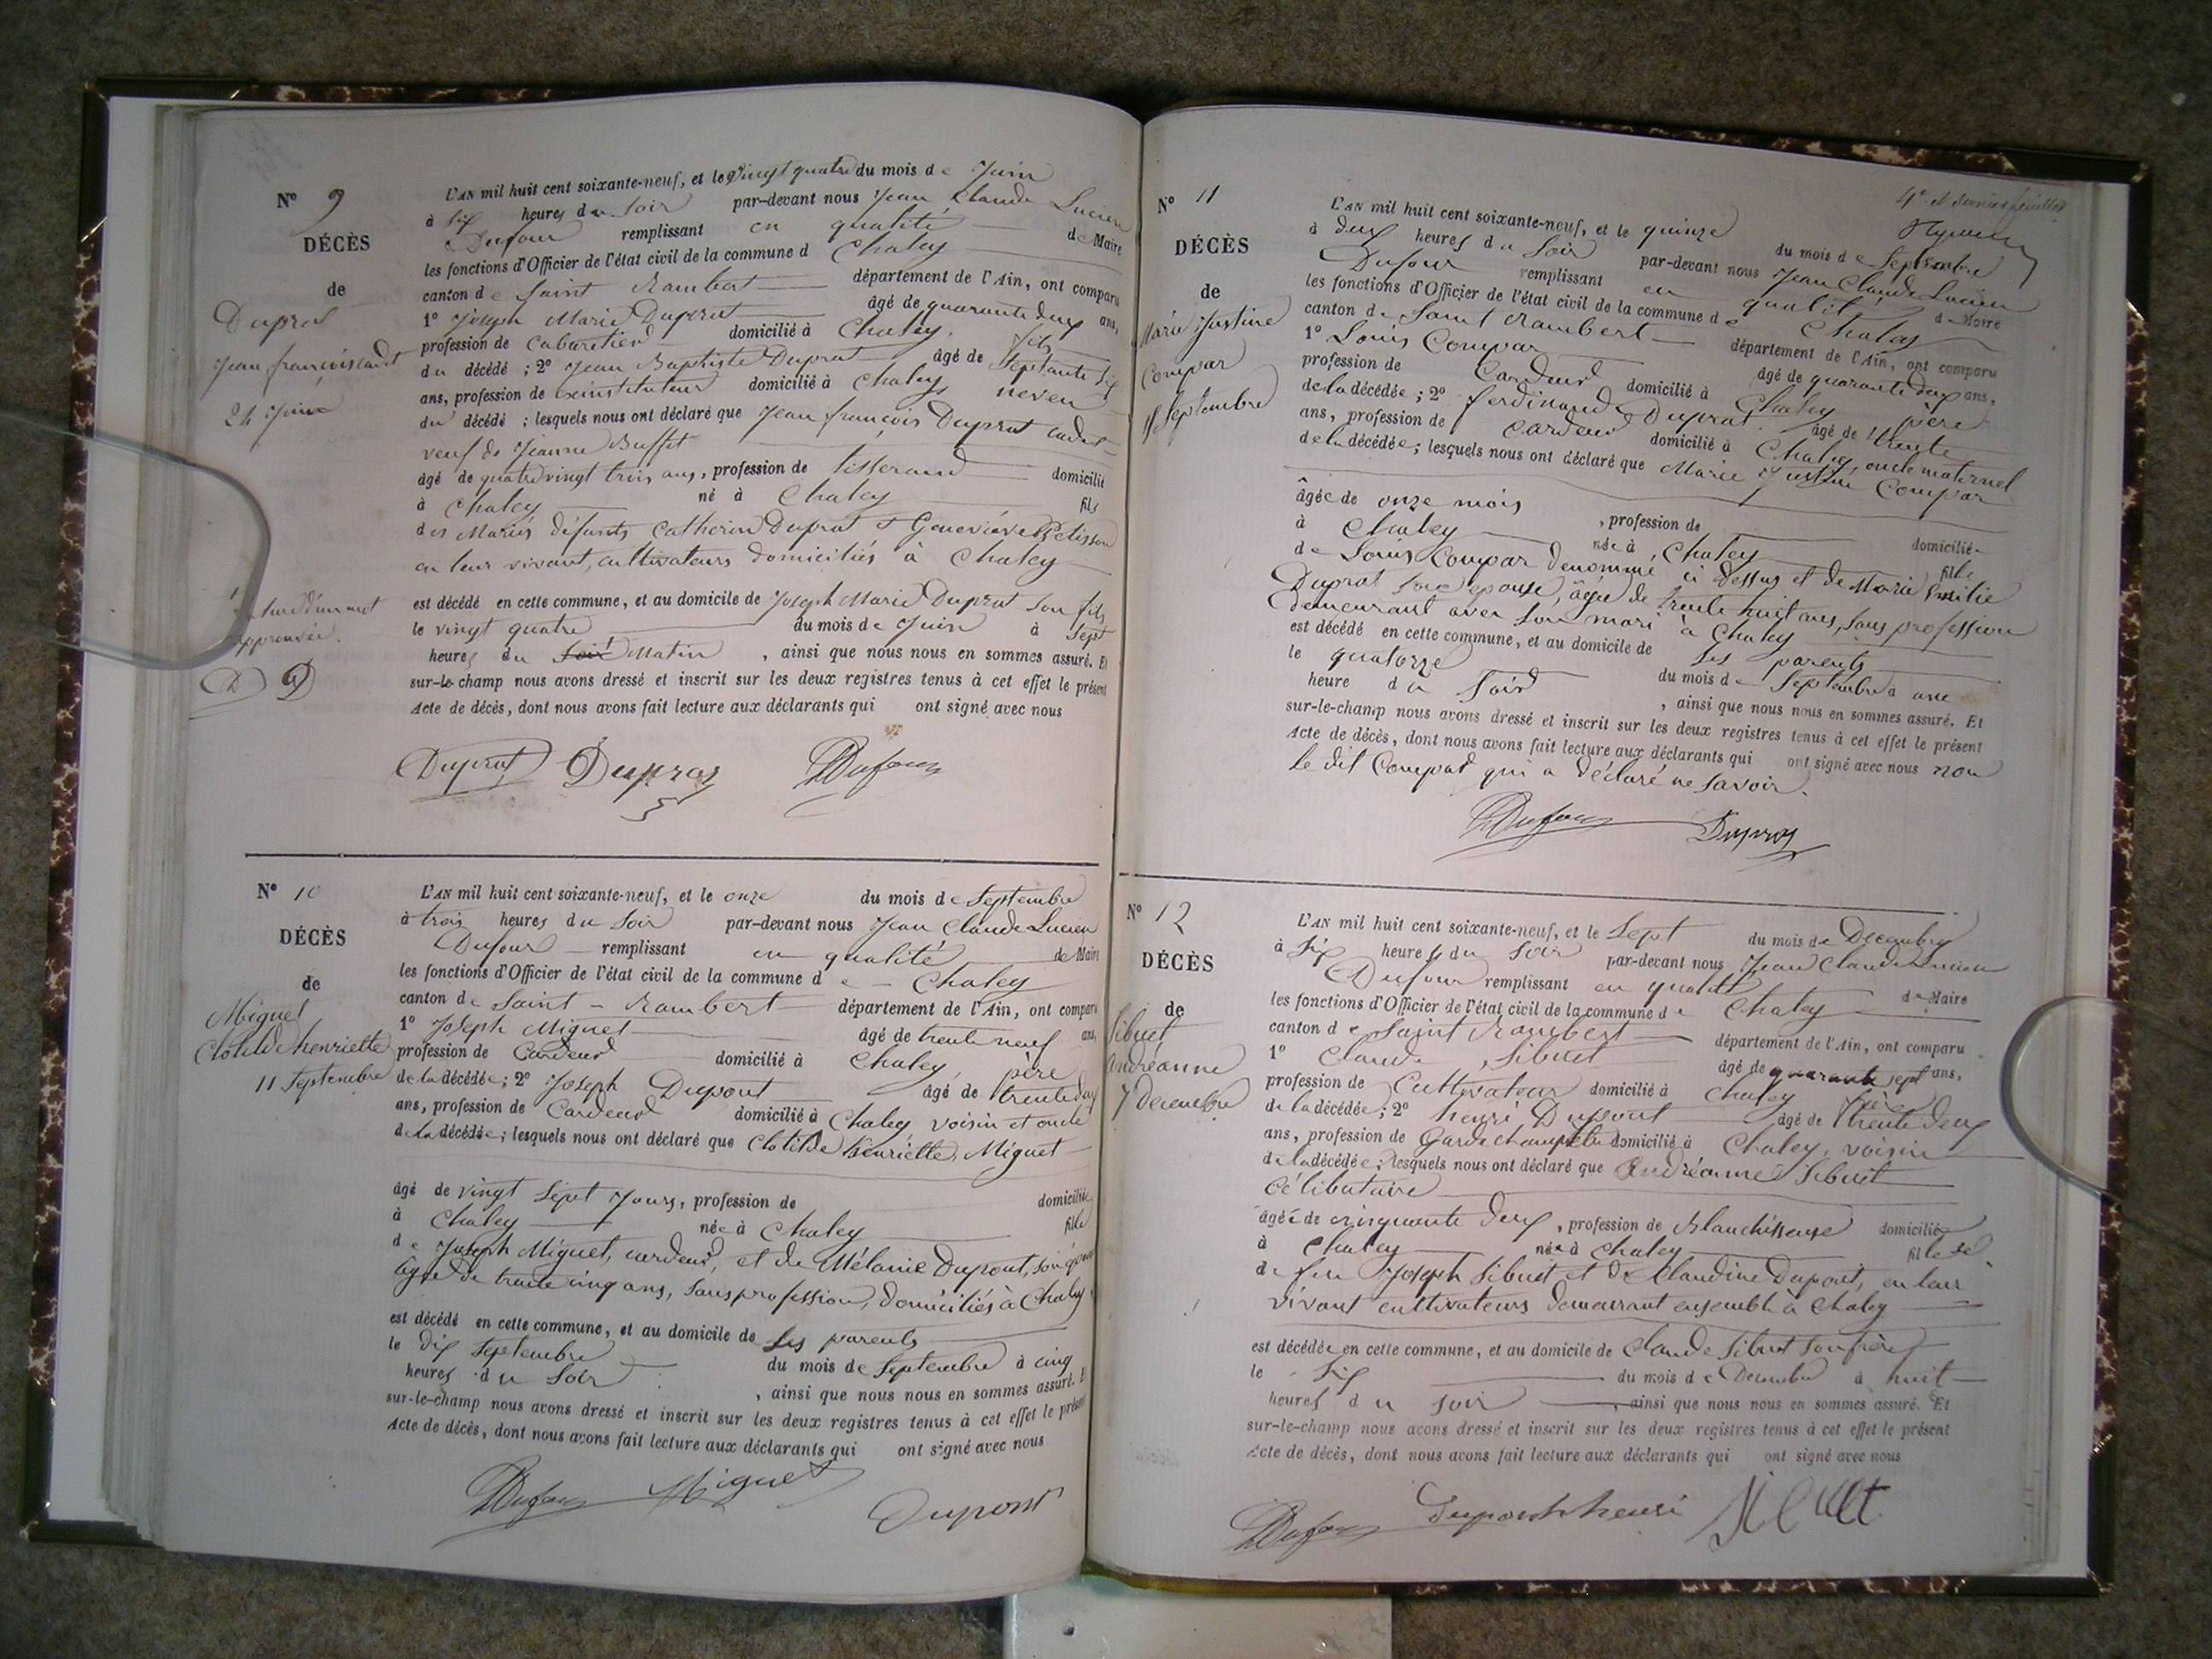 N° 9
DÉCÈS
de
Duprat
Jean françois cadet
24 Juin
L'AN mil huit cent soixante-neuf, et le vingt quatre du mois de Juin
à six heures du Soir par-devant nous Jean Claude Lucien
Dufour remplissant en qualité de Maire
les fonctions d'Officier de l'état civil de la commune d Chaley
canton de Saint Rambert département de l'Ain, ont comparu
1° Joseph Marie Duprat âgé de quarante deux ans,
profession de Cabaretier domicilié à Chaley, fils
du décédé ; 2° Jean Baptiste Duprat âgé de Septante six
ans, profession de exinstituteur domicilié à Chaley neveu
du décédé ; lesquels nous ont déclaré que Jean françois Duprat cadet
veuf de Jeanne Buffet
âgé de quatrevingt trois ans, profession de tisserand domicilié
à Chaley né à Chaley fils
des Mariés défunts Catherin Duprat et Geneviève Pelisson
en leur vivant, cultivateurs domiciliés à Chaley
est décédé en cette commune, et au domicile de Joseph Marie Duprat son fils
le vingt quatre du mois de Juin à Sept
heures du Soir Matin, ainsi que nous nous en sommes assuré. Et
sur-le-champ nous avons dressé et inscrit sur les deux registres tenus à cet effet le présent
Acte de décès, dont nous avons fait lecture aux déclarants qui ont signé avec nous
d'un mot
approuvée.
D D
Duprat Dupras Dufour
N° 10
DÉCÈS
de
Miguet
Clotilde henriette
11 Septembre
L'AN mil huit cent soixante-neuf, et le onze du mois de Septembre
à trois heures du Soir par-devant nous Jean Claude Lucien
Dufour remplissant en qualité de Maire
les fonctions d'Officier de l'état civil de la commune de Chaley
canton de Saint-Rambert département de l'Ain, ont comparu
1° Joseph Miguet âgé de trente neuf ans,
profession de Cardeur domicilié à Chaley, père
de la décédée ; 2° Joseph Dupont âgé de trente deux
ans, profession de Cardeur domicilié à Chaley voisin et oncle
de la décédée ; lesquels nous ont déclaré que Clotilde henriette Miguet
âgé de vingt Sept Jours, profession de domiciliée
à Chaley née à Chaley fille
de Joseph Miguet, cardeur, et de Mélanie Dupont, son épouse
âgée de trente cinq ans, sans profession, domiciliés à Chaley
est décédé en cette commune, et au domicile de Ses parents
le dix Septembre du mois de Septembre à cinq
heures du Soir, ainsi que nous nous en sommes assuré. Et
sur-le-champ nous avons dressé et inscrit sur les deux registres tenus à cet effet le présent
Acte de décès, dont nous avons fait lecture aux déclarants qui ont signé avec nous
Dufour Miguet
Dupont
4e et dernier feuillet
N° 11
DÉCÈS
de
Marie Justine
Compar
15 Septembre
L'AN mil huit cent soixante-neuf, et le quinze du mois de Septembre
à deux heures du Soir par-devant nous Jean Claude Lucien
Dufour remplissant en qualité de Maire
les fonctions d'Officier de l'état civil de la commune de Chaley
canton de Saint Rambert département de l'Ain, ont comparu
1° Louis Compar âgé de quarante deux ans,
profession de Cardeur domicilié à Chaley père
de la décédée ; 2° ferdinand Duprat âgé de trente
ans, profession de Cardeur domicilié à Chaley, oncle maternel
de la décédée ; lesquels nous ont déclaré que Marie Justine Compar
âgée de onze mois, profession de domicilié
à Chaley née à Chaley fille
de Louis Compar denommé ci dessus et de Marie Emilie
Duprat son épouse, âgée de trente huit ans, sans profession
demeurant avec son mari à Chaley
est décédé en cette commune, et au domicile de Ses parents
le quatorze du mois de Septembre à une
heure du Soir, ainsi que nous nous en sommes assuré. Et
sur-le-champ nous avons dressé et inscrit sur les deux registres tenus à cet effet le présent
Acte de décès, dont nous avons fait lecture aux déclarants qui ont signé avec nous non
le dit Compar qui a déclaré ne savoir.
Dufour Dupras
N° 12
DÉCÈS
de
Sibuet
andréanne
7 décembre
L'AN mil huit cent soixante-neuf, et le Sept du mois de Décembre
à Six heures du Soir par-devant nous Jean Claude Lucien
Dufour remplissant en qualité de Maire
les fonctions d'Officier de l'état civil de la commune de Chaley
canton de Saint Rambert département de l'Ain, ont comparu
1° Claude Sibuet âgé de quarante sept ans,
profession de Cultivateur domicilié à Chaley frère
de la décédée ; 2° henri Dupont âgé de trente deux
ans, profession de Garde champêtre domicilié à Chaley, voisin
de la décédée ; lesquels nous ont déclaré que Andréanne Sibuet
Célibataire
âgée de cinquante deux, profession de Blanchisseuse domiciliée
à Chaley née à Chaley fille de
de feu Joseph Sibuet et de Claudine Dupont, en leur
vivant cultivateurs demeurant ensemble à Chaley
est décédée en cette commune, et au domicile de Claude Sibuet son frère
le Six du mois de Décembre à huit
heures du soir, ainsi que nous nous en sommes assuré. Et
sur-le-champ nous avons dressé et inscrit sur les deux registres tenus à cet effet le présent
Acte de décès, dont nous avons fait lecture aux déclarants qui ont signé avec nous
Dufour Dupont henri Sibuet